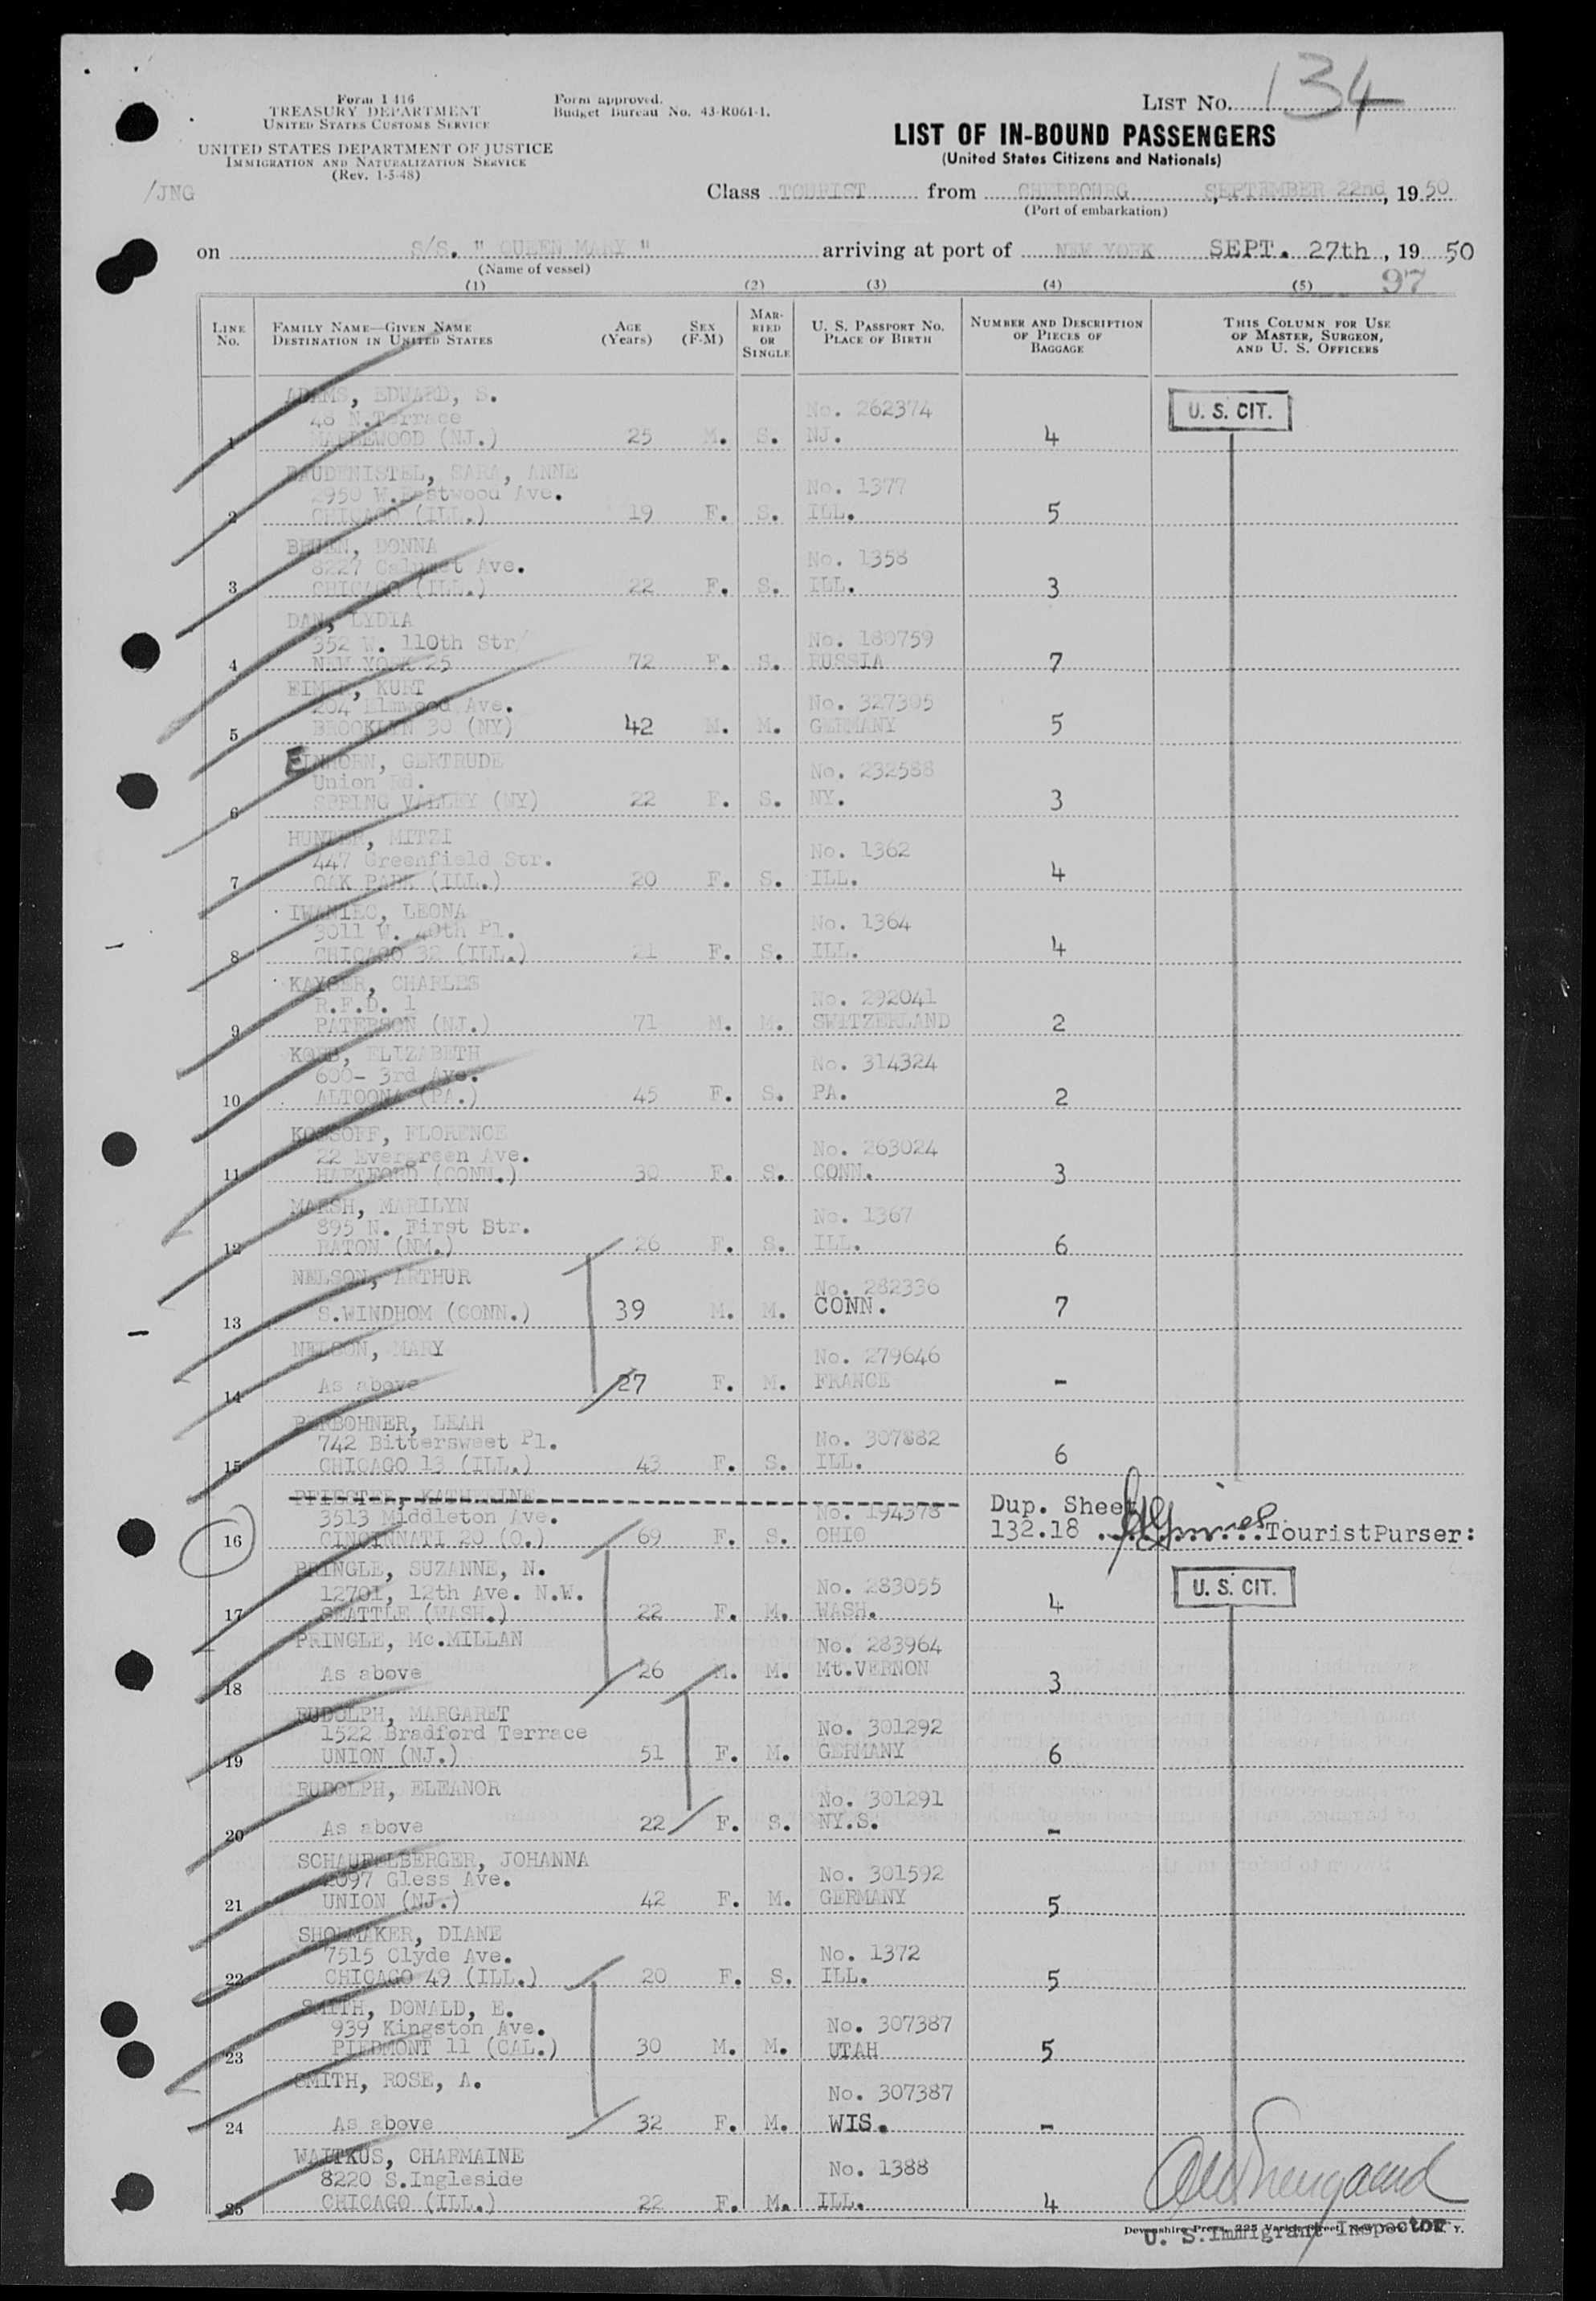 134
Form I 416
TREASURY DEPARTMENT
UNITED STATES CUSTOMS SERVICE
UNITED STATES DEPARTMENT OF JUSTICE
IMMIGRATION AND NATURALIZATION SERVICE
(Rev. 1-5-48)
Form approved.
Budget Bureau No. 43-R061-1.
LIST NO.
LIST OF IN-BOUND PASSENGERS
(United States Citizens and Nationals)
/JNG
Class TOURIST from CHERBOURG, SEPTEMBER 22nd, 1950
(Port of embarkation)
on S/S. " QUEEN MARY " arriving at port of NEW YORK SEPT. 27th, 1950
(Name of vessel)
97
(1) (2) (3) (4) (5)
LINE NO.
FAMILY NAME—GIVEN NAME
DESTINATION IN UNITED STATES
AGE (Years)
SEX (F-M)
MARRIED OR SINGLE
U. S. PASSPORT NO.
PLACE OF BIRTH
NUMBER AND DESCRIPTION OF PIECES OF BAGGAGE
THIS COLUMN FOR USE OF MASTER, SURGEON, AND U. S. OFFICERS
ADAMS, EDWARD, S. No. 262374 U. S. CIT.
48 N.Terrace
1 MAPLEWOOD (NJ.) 25 M. S. NJ. 4
BAUDENISTEL, SARA, ANNE No. 1377
2950 W.Eastwood Ave.
2 CHICAGO (ILL.) 19 F. S. ILL. 5
DONNA No. 1358
8227 Calumet Ave.
3 CHICAGO (ILL.) 22 F. S. ILL. 3
DAN, LYDIA No. 180759
352 W. 110th Str
4 NEW YORK 25 72 F. S. RUSSIA 7
KURT No. 327305
204 Elmwood Ave.
5 BROOKLYN 30 (NY) 42 M. M. GERMANY 5
EINHORN, GERTRUDE No. 232588
Union Rd.
6 SPRING VALLEY (NY) 22 F. S. NY. 3
HUNTER, MITZI No. 1362
447 Greenfield Str.
7 OAK PARK (ILL.) 20 F. S. ILL. 4
IWANIEC, LEONA No. 1364
3011 W. 40th Pl.
8 CHICAGO 32 (ILL.) 21 F. S. ILL. 4
KAYSER, CHARLES No. 292041
R.F.D. 1
9 PATERSON (NJ.) 71 M. M. SWITZERLAND 2
ELIZABETH No. 314324
600- 3rd Ave.
10 ALTOONA (PA.) 45 F. S. PA. 2
KOSSOFF, FLORENCE No. 263024
22 Evergreen Ave.
11 HARTFORD (CONN.) 30 F. S. CONN. 3
MARSH, MARILYN No. 1367
895 N. First Str.
12 RATON (NM.) 26 F. S. ILL. 6
NELSON, ARTHUR No. 282336
13 S.WINDHOM (CONN.) 39 M. M. CONN. 7
NELSON, MARY No. 279646
14 As above 27 F. M. FRANCE -
LEAH No. 307882
742 Bittersweet Pl.
15 CHICAGO 13 (ILL.) 43 F. S. ILL. 6
PFIESTER, KATHERINE No. 194378 Dup. Sheet
3513 Middleton Ave.
16 CINCINNATI 20 (O.) 69 F. S. OHIO 132.18 TouristPurser:
PRINGLE, SUZANNE, N. No. 283055 U. S. CIT.
12701, 12th Ave. N.W.
17 SEATTLE (WASH.) 22 F. M. WASH. 4
PRINGLE, Mc.MILLAN No. 283964
18 As above 26 M. M. Mt.VERNON 3
RUDOLPH, MARGARET No. 301292
1522 Bradford Terrace
19 UNION (NJ.) 51 F. M. GERMANY 6
RUDOLPH, ELEANOR No. 301291
20 As above 22 F. S. NY.S. -
SCHAUFELBERGER, JOHANNA No. 301592
2097 Gless Ave.
21 UNION (NJ.) 42 F. M. GERMANY 5
SHOEMAKER, DIANE No. 1372
7515 Clyde Ave.
22 CHICAGO 49 (ILL.) 20 F. S. ILL. 5
SMITH, DONALD, E. No. 307387
939 Kingston Ave.
23 PIEDMONT 11 (CAL.) 30 M. M. UTAH 5
SMITH, ROSE, A. No. 307387
24 As above 32 F. M. WIS. -
WAITKUS, CHARMAINE No. 1388
8220 S.Ingleside
25 CHICAGO (ILL.) 22 F. M. ILL. 4
Devonshire Press, 225 Varick Street, New York, N. Y.
U. S. Immigrant Inspector